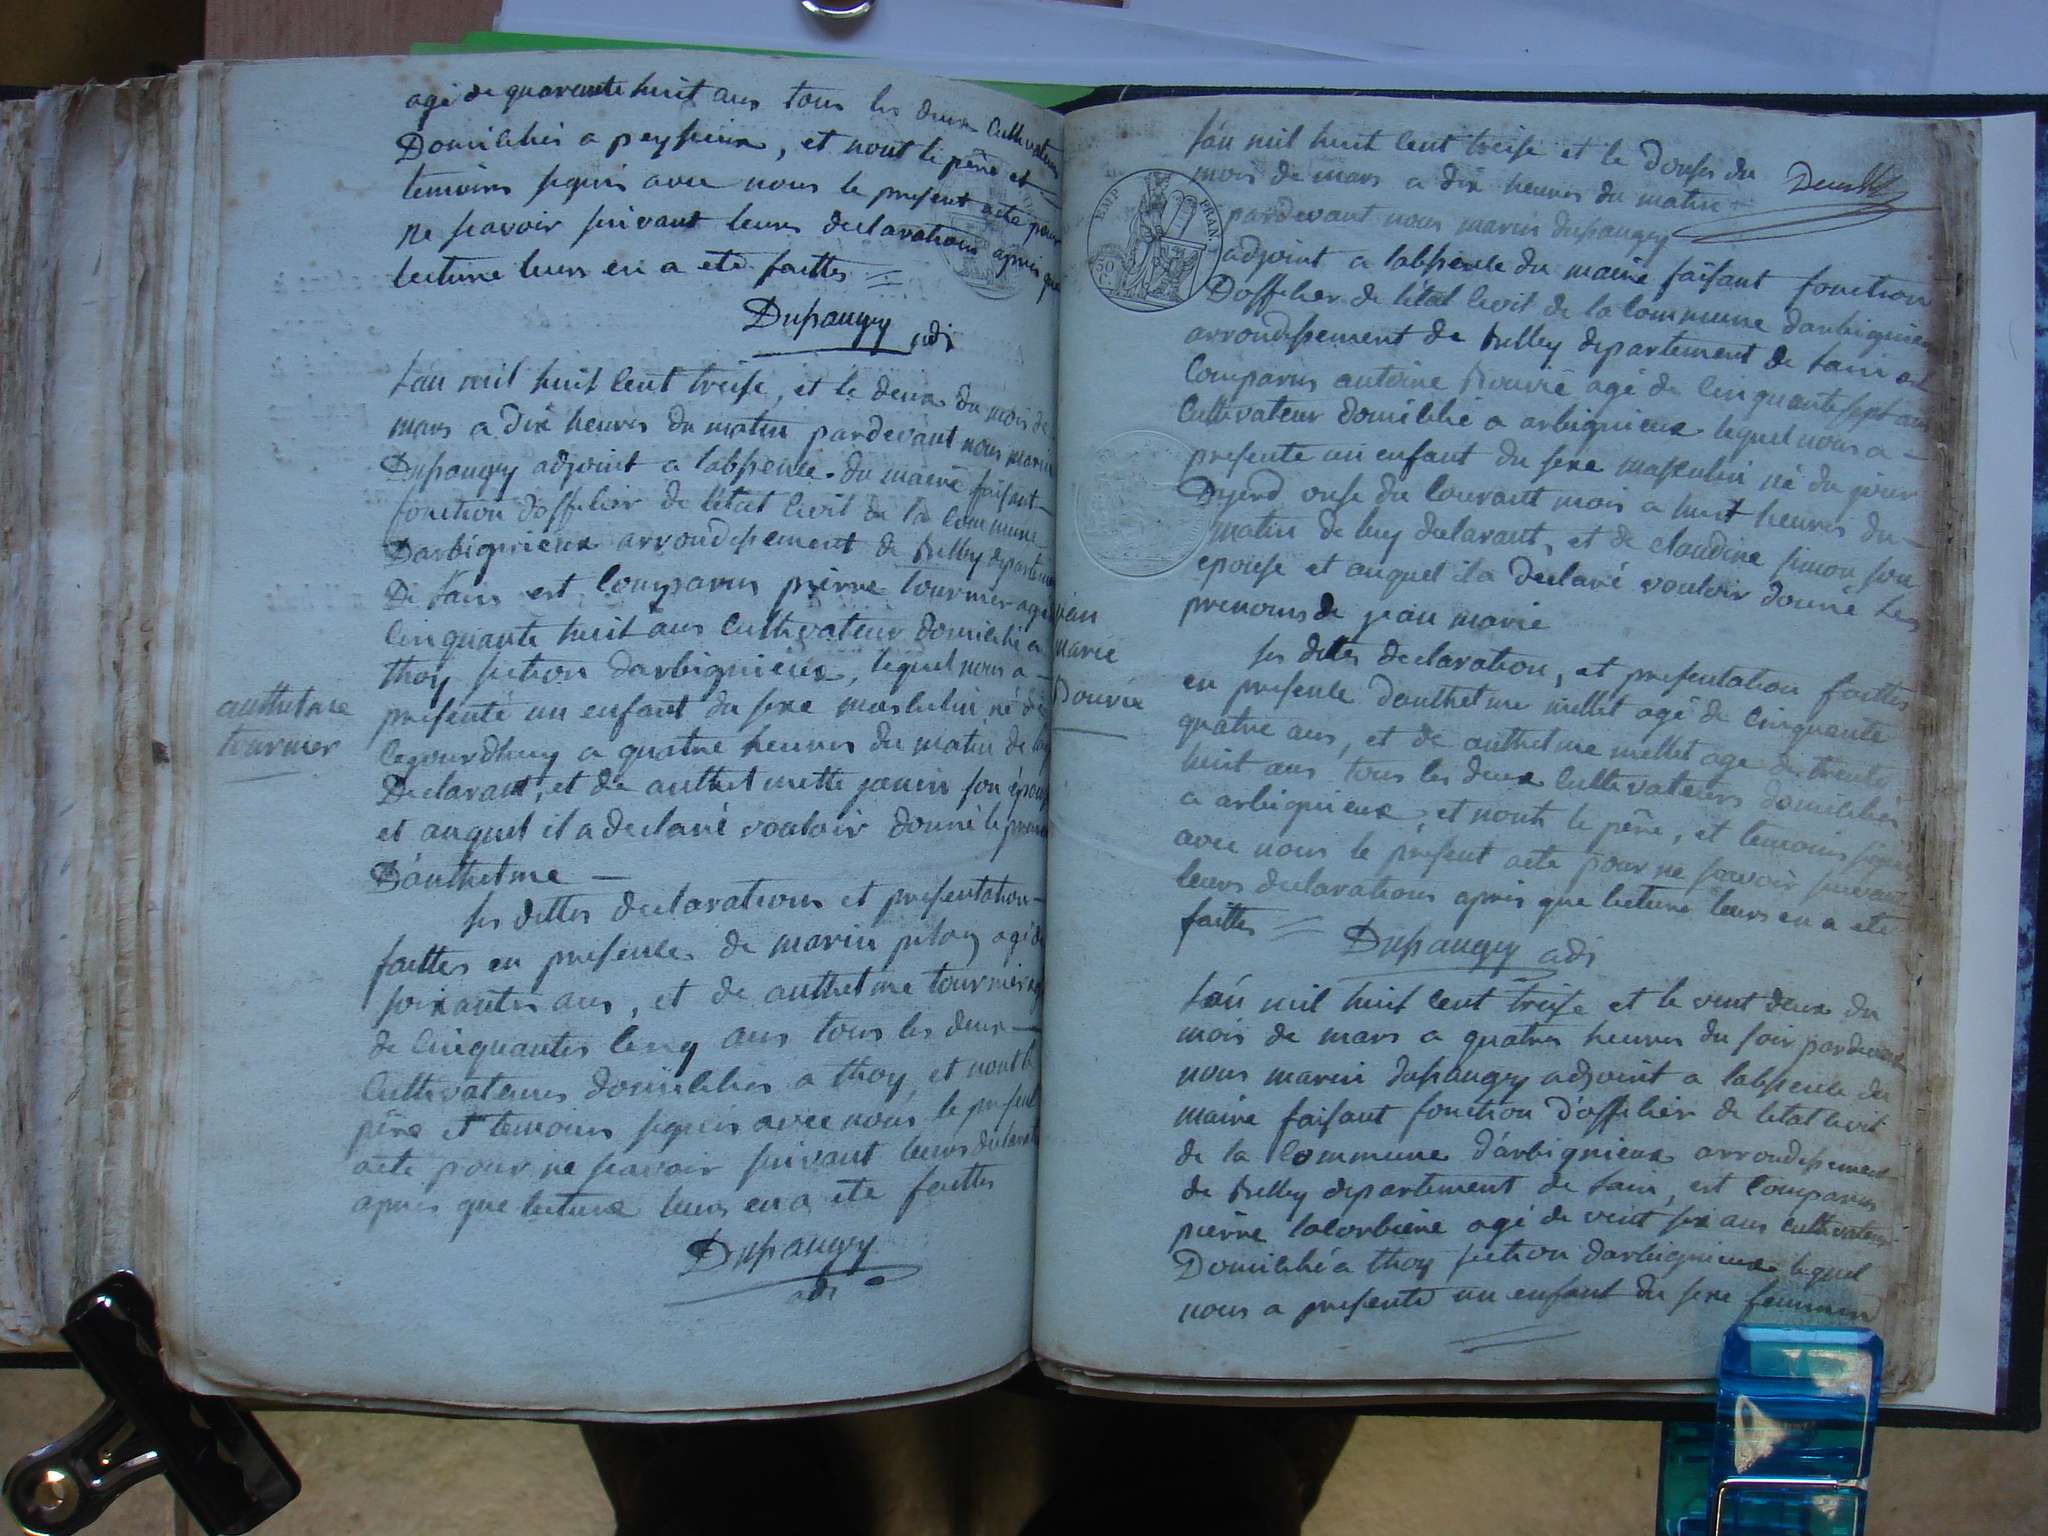 agé de quarante huit ans tous les deux Cultivateurs
Domiciliés a peyzieux, et nont le père et
temoins signés avec nous le present acte pour
ne scavoir suivant leurs declarations après que
lecture leurs en a eté faittes
Dupaugey adj
L'an mil huit Cent treise, et le deux du mois de
mars a dix heures du matin pardevant nous marin
Dupaugey adjoint a labsence du maire faisant
fonction dofficier de létat Civil de la Commune
Darbignieux arrondissement de Belley departem
De Lain est Comparus pierre tournier agé
Cinquante huit ans Cultivateur domicilié a
thoy section darbignieux, lequel nous a
presenté un enfant du sexe masculin né de
Cejourdhuy a quatre heures du matin de luy
Declarant, et de anthelmette janin son épouse
et auquel il a declaré vouloir donné le prenom
D'anthelme
Ses dittes declarations et presentation
faittes en presence de marin piloz agé de
soixantes ans, et de anthelme tournier agé
de Cinquantes Cinq ans tous les deux
Cultivateurs domiciliés a thoy, et nont le
père et temoins signés avec nous le present
acte pour ne scavoir suivant leurs declarat
après que lecture leurs en a eté faittes
Dupaugey
adj
anthelme
tournier
EMP FRAN.
50 C.
L'an mil huit Cent treise et le douse du
mois de mars a dix heures du matin
pardevant nous marin dupaugey
adjoint a labsence du maire faisant fonction
Dofficier de létat Civil de la Commune darbignieux
arrondissement de Belley departement de Lain est
Comparus antoine Bouvié agé de Cinquante sept ans
Cultivateur domicilié a arbignieux lequel nous a
presenté un enfant du sexe masculin né du jour
Dyerd onse du Courant mois a huit heures du
matin de luy declarant, et de claudine simon son
epouse et auquel il a declaré vouloir donné les
prenoms de jean marie
Ses dittes declaration, et presentation faittes
en presence danthelme mellet agé de Cinquante
quatre ans, et de anthelme mellet agé de trente
huit ans tous les deux Cultivateurs domiciliés
a arbignieux, et nonts le père, et temoins signés
avec nous le present acte pour ne scavoir suivant
leurs declarations après que lecture leurs en a eté
faittes
Dupaugey adj
jean
marie
Bouvié
L'an mil huit Cent treise et le vint deux du
mois de mars a quatres heures du soir pardevant
nous marin dupaugey adjoint a labsence du
maire faisant fonction D'officier de létat Civil
de la Commune d'arbignieux arrondissement
de Belley departement de Lain, est Comparus
pierre lacorbiere agé de vint six ans cultivateur
Domicilié a thoy section darbignieux lequel
nous a presenté un enfant du sexe feminin